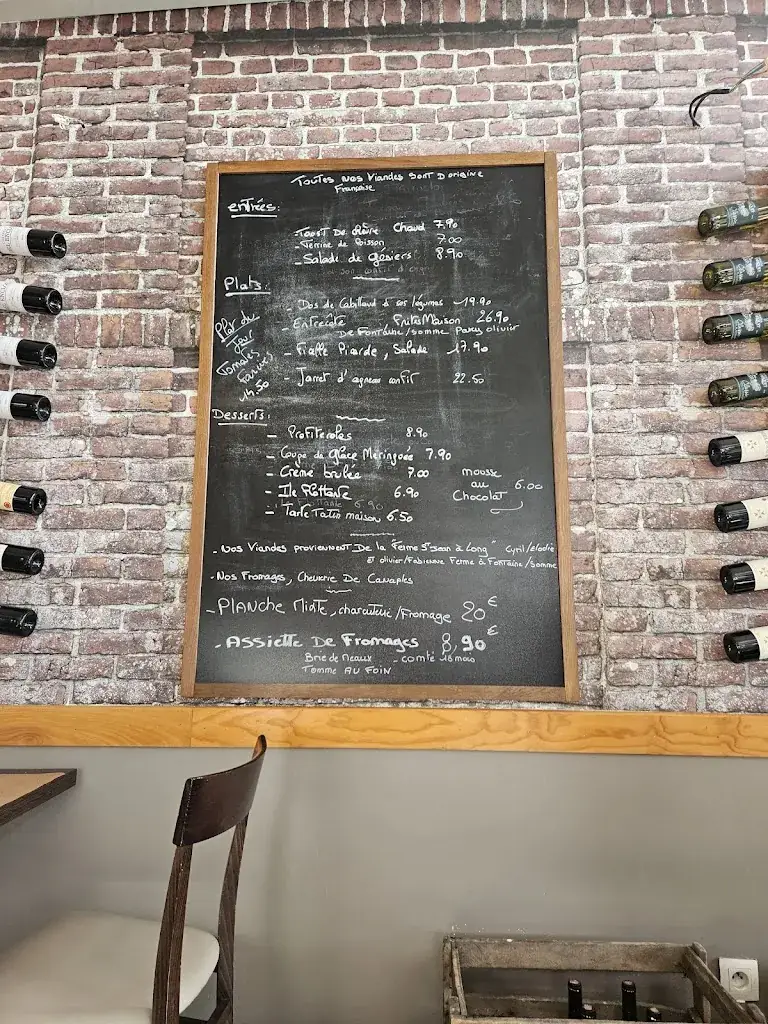 Toutes nos Viandes sont D'origine
Française
entrées:
- Toast De chèvre Chaud 7.90
- Terrine de Poisson 7.00
- Salade de gésiers 8.90
Plats:
- Dos de Cabillaud & ses légumes 19.90
- Entrecôte Frites Maison 26.90
De Fontaine/somme Parcy olivier
- Ficelle Picarde, Salade 17.90
- Jarret d'agneau confit 22.50
Plat du
Jour
Tomates
farcies
14.50
Desserts:
- Profiteroles 8.90
- Coupe de Glace Meringuée 7.90
- Crème brulée 7.00
- Ile Flottante 6.90
- Tarte Tatin maison 6.50
mousse
au
Chocolat 6.00
- Nos Viandes proviennent De la "Ferme St Jean à Long" Cyril/élodie
et olivier/Fabienne Ferme à Fontaine/somme
- Nos Fromages, Chevrerie De Canaples
- PLANCHE Mixte, charcuterie/Fromage 20€
- ASSiette De Fromages 8,90€
Brie de Meaux - comté 18 mois
Tomme AU FOIN